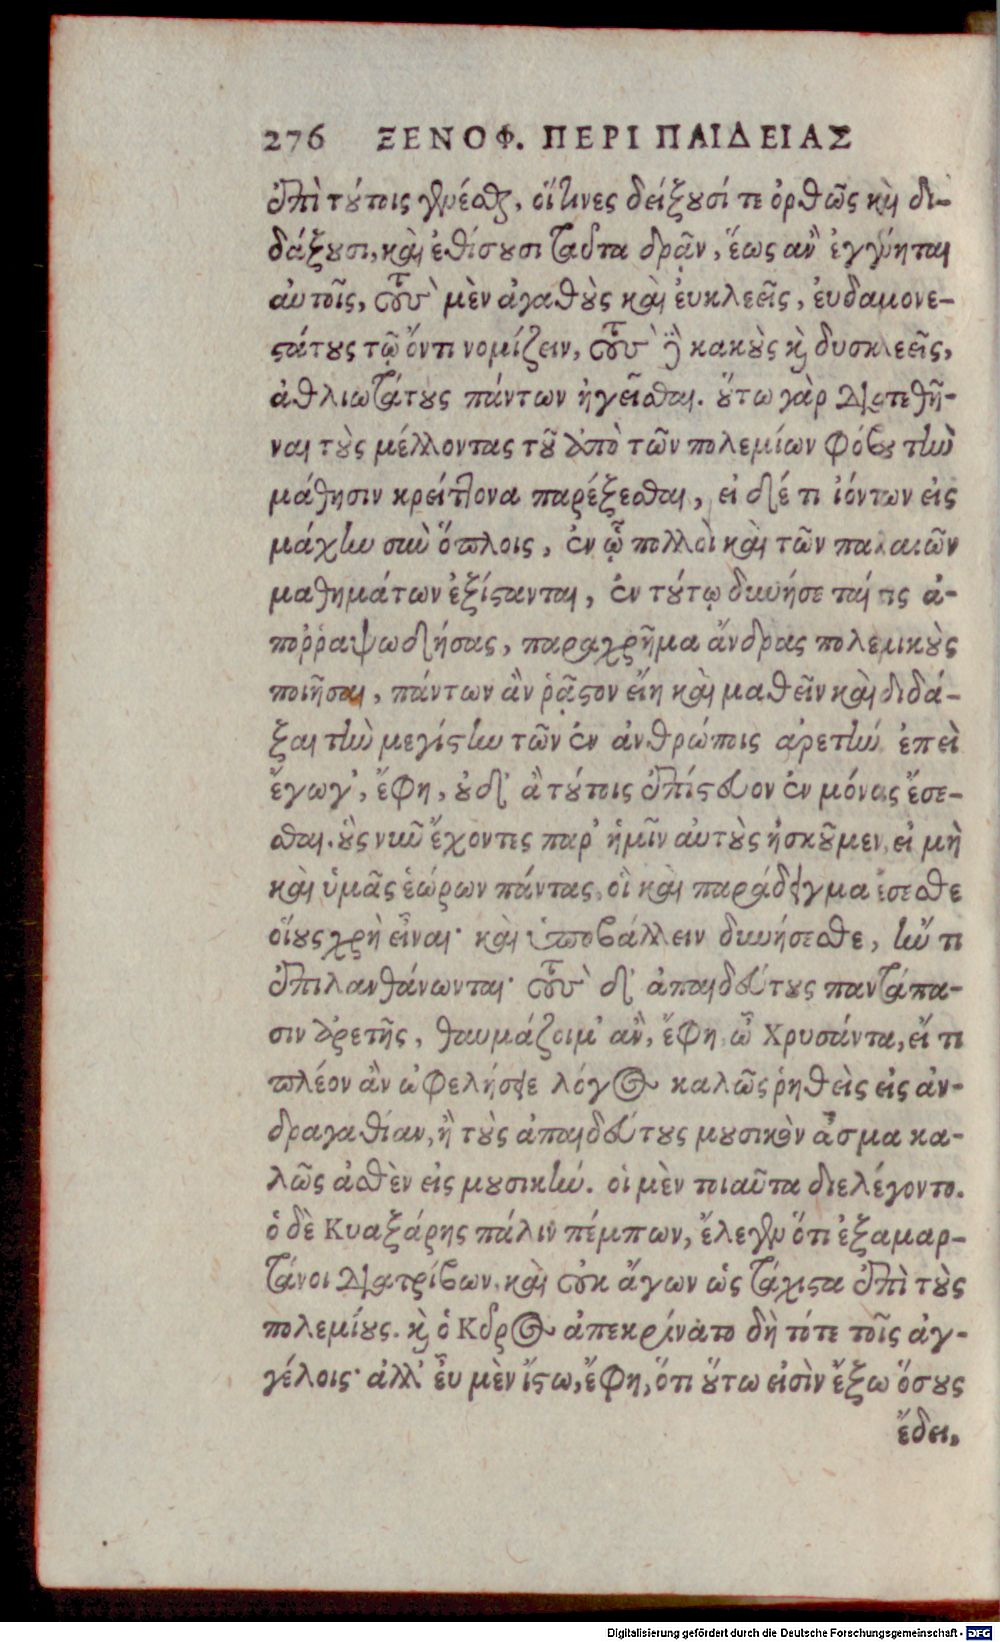 276 ΞΕΝΟΦ. ΠΕΡΙ ΠΑΙΔΕΙΑΣ
ἐπὶ τύτοις γενέσθαι, οἵτινες δείξουσί τε ὀρθῶς καὶ δι-
δάξουσι, καὶ ἐθίσουσι ταῦτα δρᾷν, ἕως ἂν ἐγγένηται
αὐτοῖς, τοὺς μὲν ἀγαθοὺς καὶ εὐκλεεῖς, εὐδαμονε-
στάτους τῷ ὄντι νομίζειν, τοὺς δὲ κακοὺς καὶ δυσκλεεῖς,
ἀθλιωτάτους πάντων ἡγεῖσθαι. οὕτω γὰρ διατεθῆ-
ναι τοὺς μέλλοντας τοῦ ἀπὸ τῶν πολεμίων φόβου τὴν
μάθησιν κρείττονα παρέξεσθαι, εἰ δέ τι ἰόντων εἰς
μάχην σὺν ὅπλοις, ἐν ᾧ πολλοὶ καὶ τῶν παλαιῶν
μαθημάτων ἐξίστανται, ἐν τούτῳ δυνήσεταί τις ἀ-
ποῤῥαψωδήσας, παραχρῆμα ἄνδρας πολεμικοὺς
ποιῆσαι, πάντων ἂν ῥᾷστον εἴη καὶ μαθεῖν καὶ διδά-
ξαι τὴν μεγίστην τῶν ἐν ἀνθρώποις ἀρετήν. ἐπεὶ
ἔγωγ', ἔφη, οὐδ' ἂ τούτοις ἐπίστευον ἐν μόνας ἔσε-
σθαι. οὓς νῦν ἔχοντες παρ' ἡμῖν αὐτοὺς ἠσκοῦμεν, εἰ μὴ
καὶ ὑμᾶς ἑώρων πάντας, οἳ καὶ παράδειγμα ἔσεσθε
οἵους χρὴ εἶναι· καὶ ὑποβάλλειν δυνήσεσθε, ἤν τι
ἐπιλανθάνωνται· τοὺς δ' ἀπαιδεύτους παντάπα-
σιν ἀρετῆς, θαυμάζοιμ' ἂν, ἔφη, ὦ Χρυσάντα, εἴ τι
πλέον ἂν ὠφελήσειε λόγος καλῶς ῥηθεὶς εἰς ἀν-
δραγαθίαν, ἢ τοὺς ἀπαιδεύτους μουσικὸν ᾆσμα κα-
λῶς ἀσθὲν εἰς μουσικήν. οἱ μὲν τοιαῦτα διελέγοντο.
ὁ δὲ Κυαξάρης πάλιν πέμπων, ἔλεγεν ὅτι ἐξαμαρ-
τάνοι διατρίβων, καὶ οὐκ ἄγων ὡς τάχιστα ἐπὶ τοὺς
πολεμίους. καὶ ὁ Κῦρος ἀπεκρίνατο δὴ τότε τοῖς ἀγ-
γέλοις· ἀλλ' εὖ μὲν ἴστω, ἔφη, ὅτι οὔτω εἰσὶν ἔξω ὅσους
ἔδει,
Digitalisierung gefördert durch die Deutsche Forschungsgemeinschaft - DFG